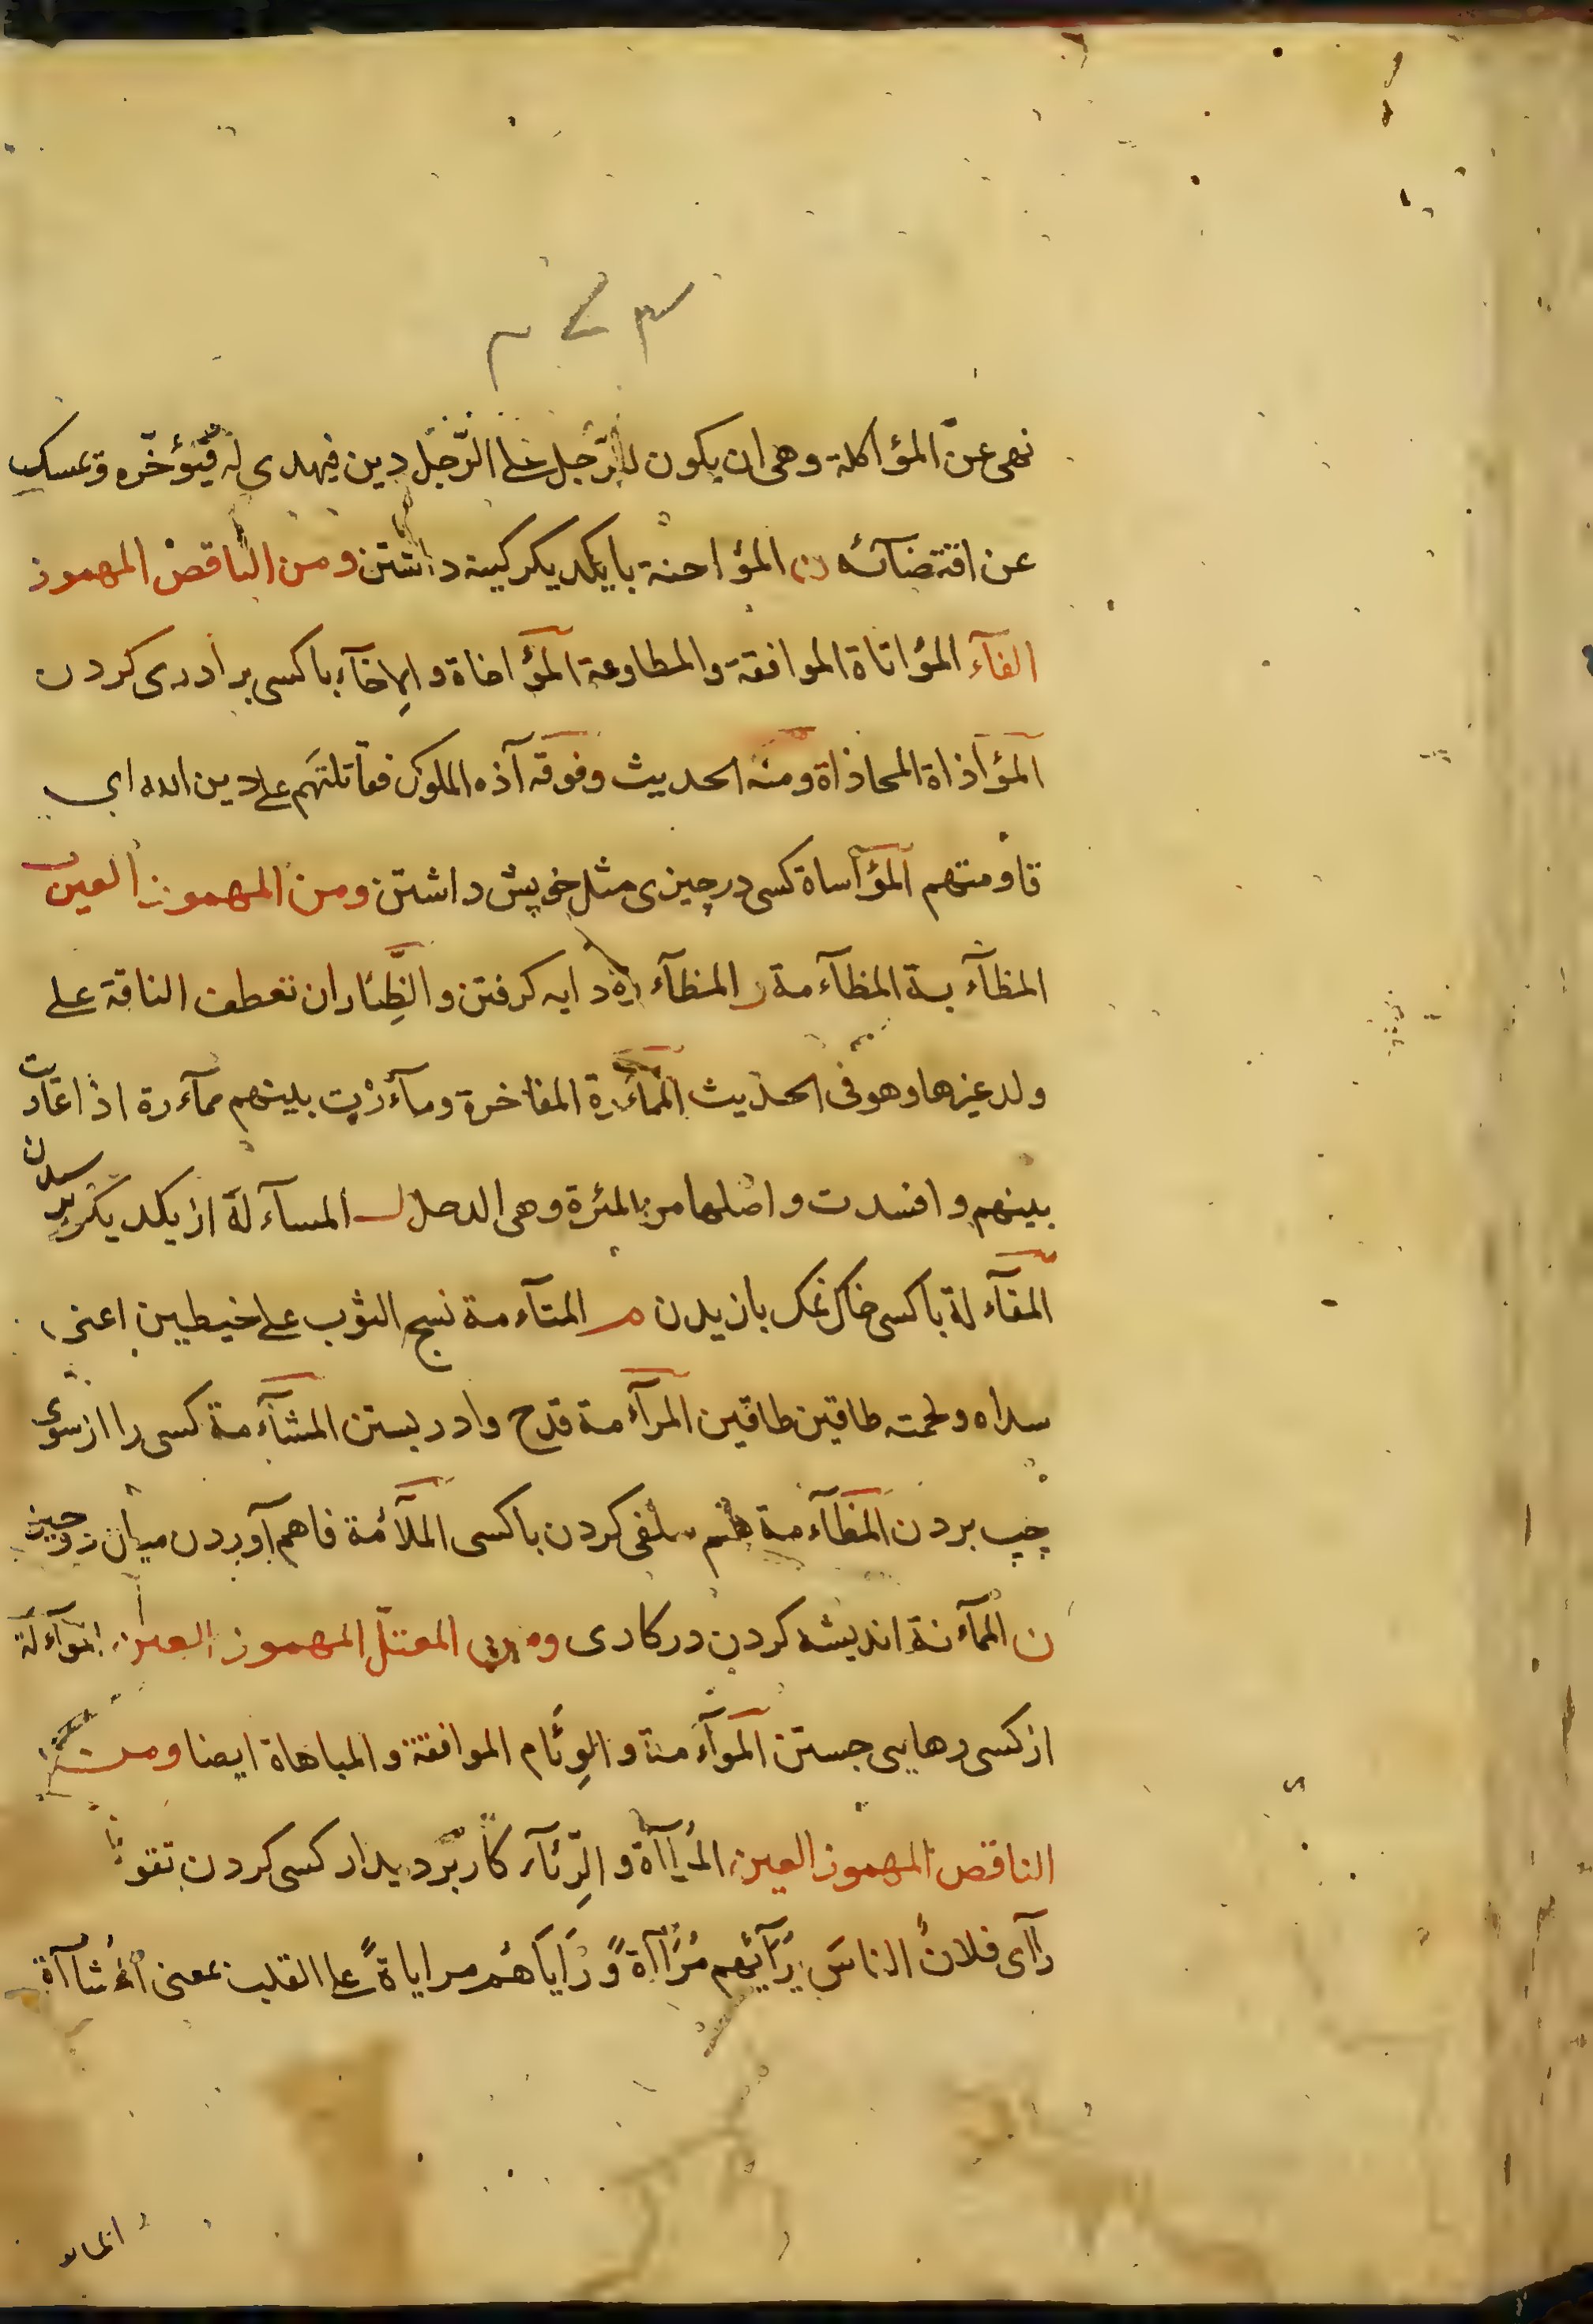 نهى عن المؤاكلة وهى ان يكون للرّجل على الرّجل دين فيهدى له فيؤخّره ويمسك
عن اقتضآئه ن المؤاحنة بايكديكر كينه داشتن ومن الناقص المهموز
الفآء المؤاتاة الموافقة والمطاوعة المؤاخاة والإخآء باكسى برادرى كردن
المؤاذاة المحاذاة ومنه الحديث وفرقه آذه الملوك فقاتلتهم على دين الله اى
قاومتهم المؤآساة كسى درچيزى مثل خويش داشتن ومن المهموز العين
المظآءبة المظآءمة ر المظآءرة دايه كرفتن والظِّئار ان تعطف الناقة على
ولد غيرها وهو فى الحديث المماءرة المفاخرة ومآءرت بينهم ممآءرة اذا عادت
بينهم وافسدت واصلها من المئرة وهى الدحل ل المسآءلة از يكديكر پرسيدن
المفآءلة باكسى خاك نمك بازيدن م المتآءمة نسج الثوب على خيطين اعنى
سداه ولحمته طاقين طاقين المرآءمة قدح وادر بستن المشآءمة كسى را ازسوى
چپ بردن المظآءمة هم سلفى كردن باكسى الملآئمة فاهم آوردن ميان دوچيز
ن الممآءنة انديشه كردن دركارى ومن المعتلّ المهموز العين الموآءلة
ازكسى رهايى جستن الموآءمة والوِئام الموافقة والمباهاة ايضا ومن
الناقص المهموز العين المُراآة والرِّئآء كار بر ديدار كسى كردن تقول
راآى فلانٌ الناسَ يُرآئيهم مُرَااةً ورَايَاهُم مراياةً على القلب بمعنى المُشاآة